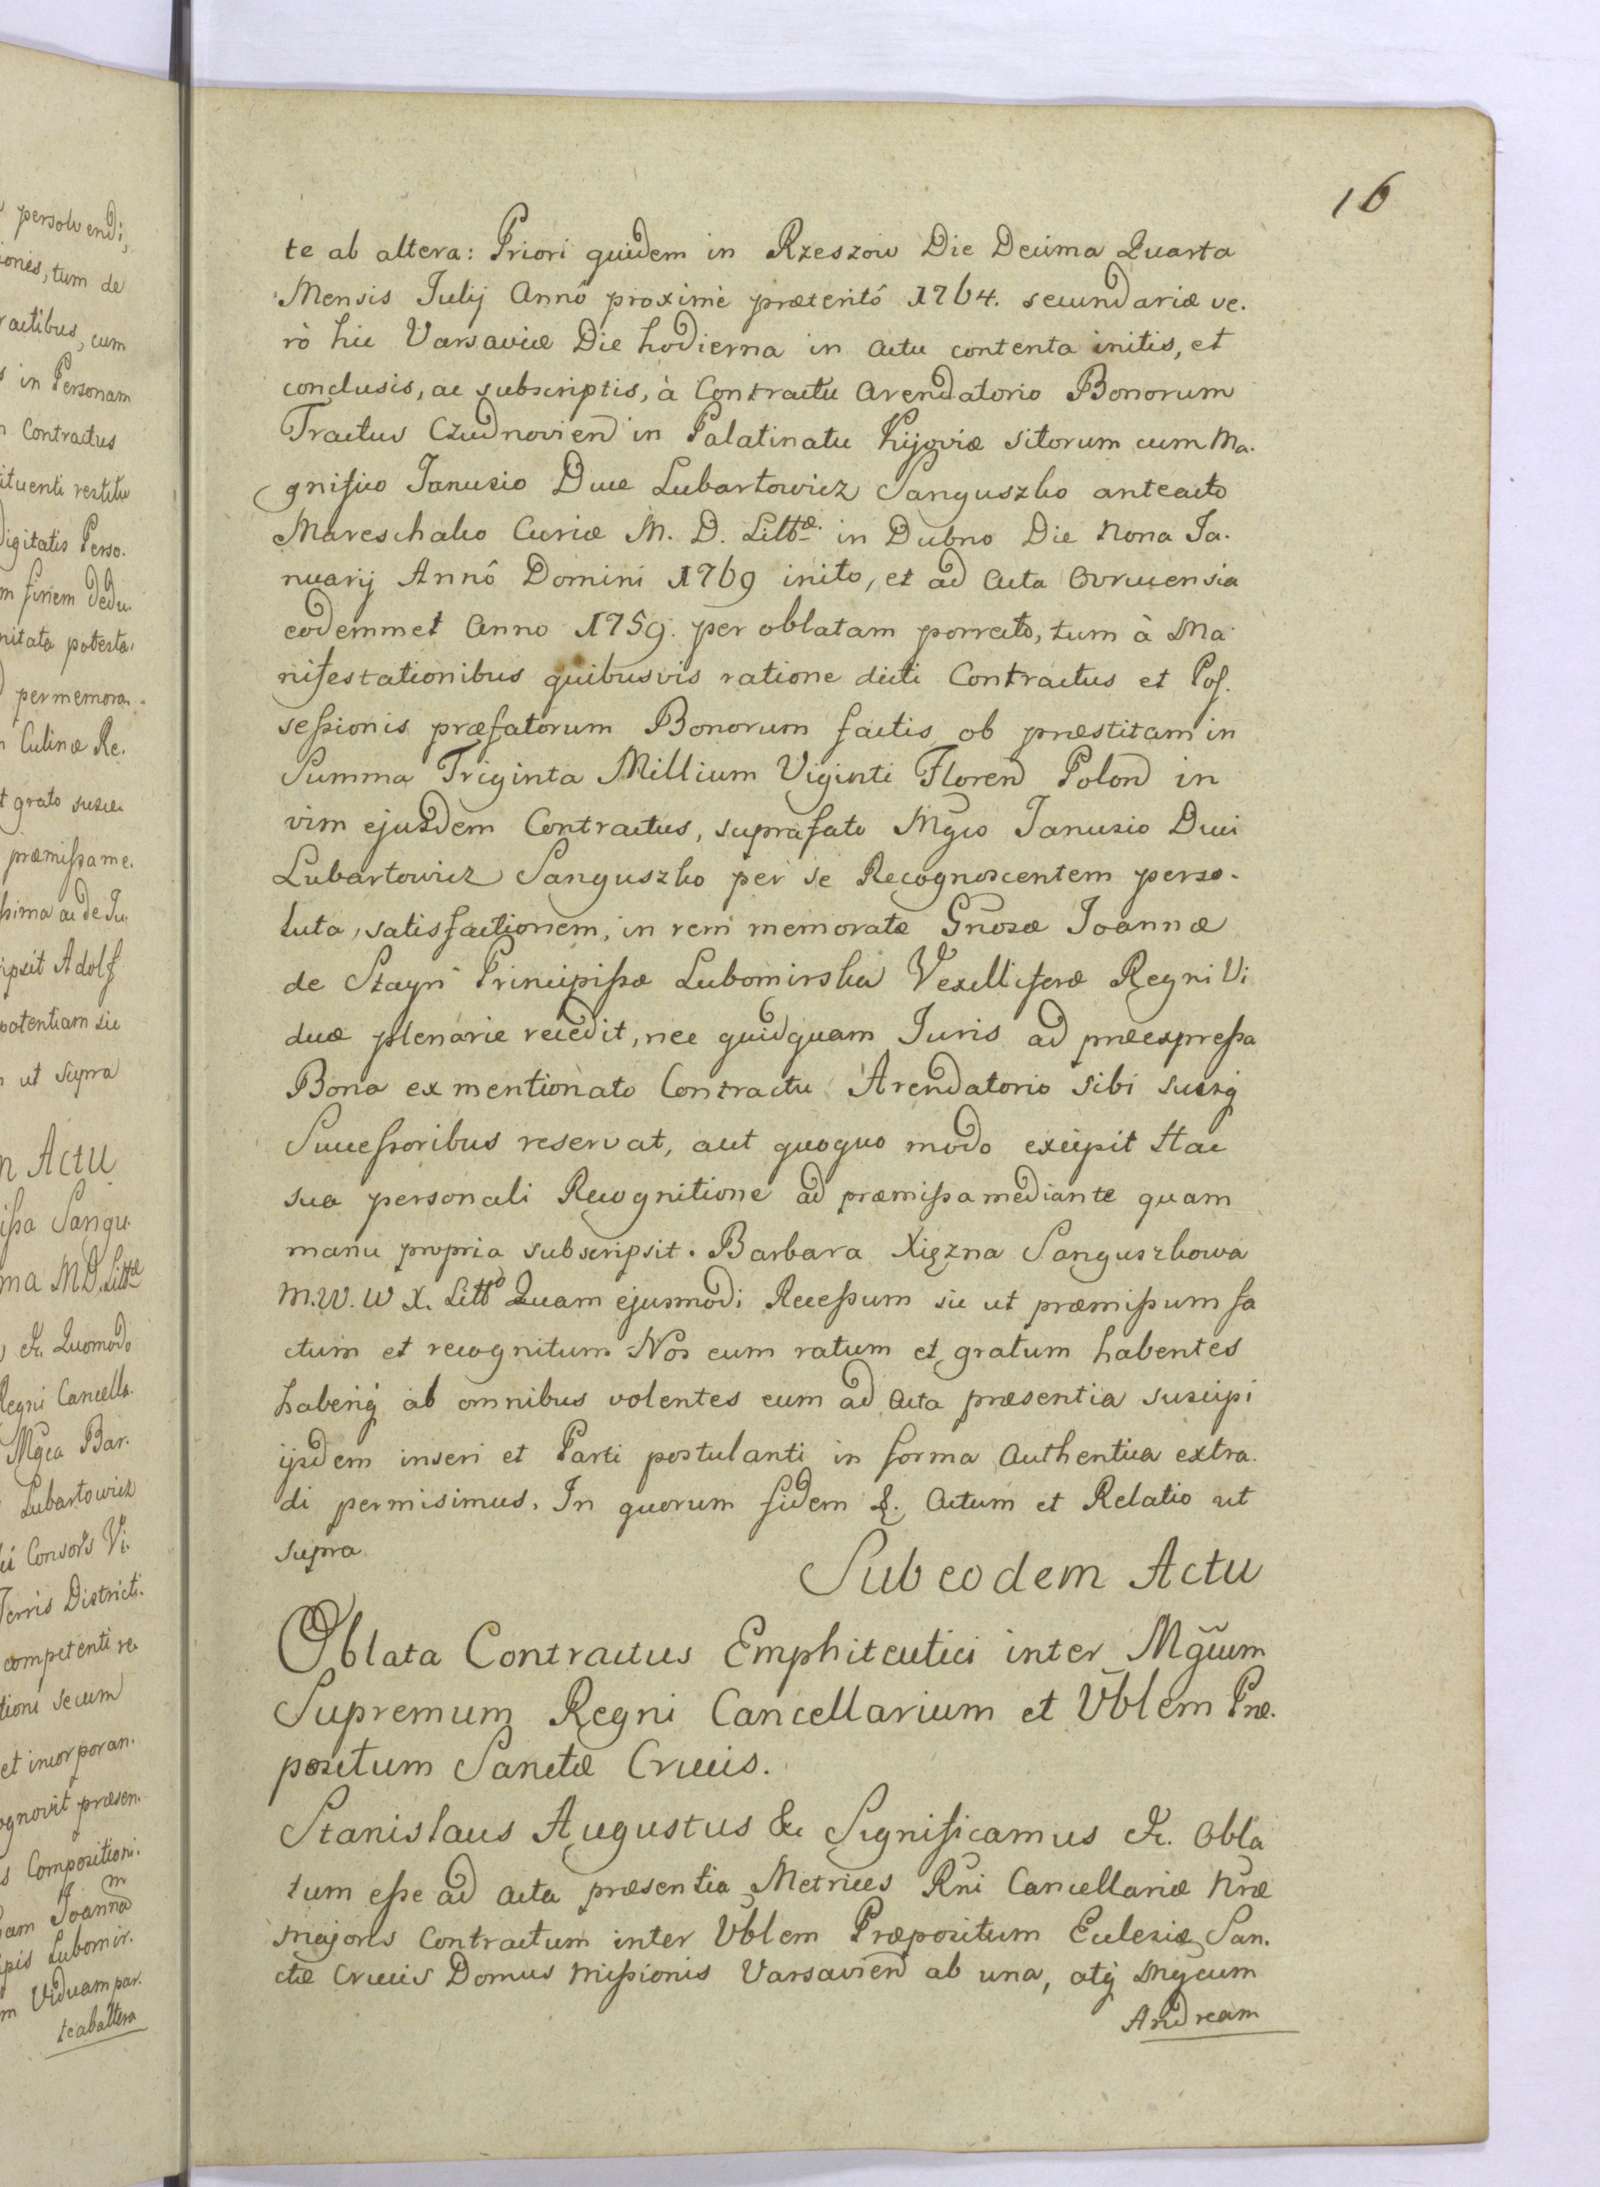 persolvendi,
iones, tum de
ractibus, cum
in Personam
Contractus
ituenti restitu
Digitatis Perso.
m finem dedu.
nitata potesta.
per memora.
Culinæ Re.
t grato susce
præmissa me.
ssima ac de Ju
ipsit Adolf
potentiam sic
ut supra
n Actu
issa Sangu.
ma M.D. Littæ
&c. Quomodo
Regni Cancella.
Mgca Bar.
Lubartowicz
Consors Vi.
Terris Districti.
competenti re
tioni secum
et incorporan.
ognovit præsen.
s Compositioni.
am Joannam
ipis Lubomir.
m Viduam par.
te ab altera
16
te ab altera: Priori quidem in Rzeszow Die Decima Quarta
Mensis Julij Annô proximè præteritô 1764. secundariæ ve.
rò hic Varsaviæ Die hodierna in actu contenta initis, et
conclusis, ac subscriptis, à Contractu Arendatorio Bonorum
Tractus Czudnoviend in Palatinatu Kijoviæ sitorum cum Ma.
gnifico Janusio Duce Lubartowicz Sanguszko anteacto
Mareschalco Curiæ M. D. Littæ. in Dubno Die Nona Ja.
nuarij Annô Domini 1769 inito, et ad Acta Ovrucensia
eodemmet Anno 1759. per oblatam porrecto, tum à Ma
nifestationibus quibusvis ratione dicti Contractus et Pos.
sessionis præfatorum Bonorum factis ob præstitam in
Summa Triginta Millium Viginti Floren Polon in
vim ejusdem Contractus, suprafato Mgco Janusio Duci
Lubartowicz Sanguszko per se Recognoscentem perso.
luta, satisfactionem, in rem memoratæ Gnosæ Joannæ
de Stayn Principissæ Lubomirska Vexilliferæ Regni Vi
duæ plenarie recedit, nec quidquam Juris ad præexpressa
Bona ex mentionato Contractu Arendatorio sibi suisq
Successoribus reservat, aut quoquo modo excipit Hac
sua personali Recognitione ad præmissa mediante quam
manu propria subscripsit. Barbara Xiężna Sanguszkowa
M. W. W X. Litto Quam ejusmodi Recessum sic ut præmissum fa
ctum et recognitum Nos eum ratum et gratum habentes
haberiq́ ab omnibus volentes eum ad Acta præsentia suscipi
ijsdem inseri et Parti postulanti in forma Authentica extra.
di permisimus. In quorum fidem &. Actum et Relatio ut
supra
Sub eodem Actu
Oblata Contractus Emphiteutici inter Mgcum
Supremum Regni Cancellarium et Vblem Præ.
positum Sanctæ Crucis.
Stanislaus Augustus &c Significamus &c. Obla
tum esse ad Acta præsentia Metrices Rni Cancellariæ Nræ
Majoris Contractum inter Vblem Præpositum Eclesiæ San.
ctæ Crucis Domus Missionis Varsaviend ab una, atq́ Mgcum
Andream